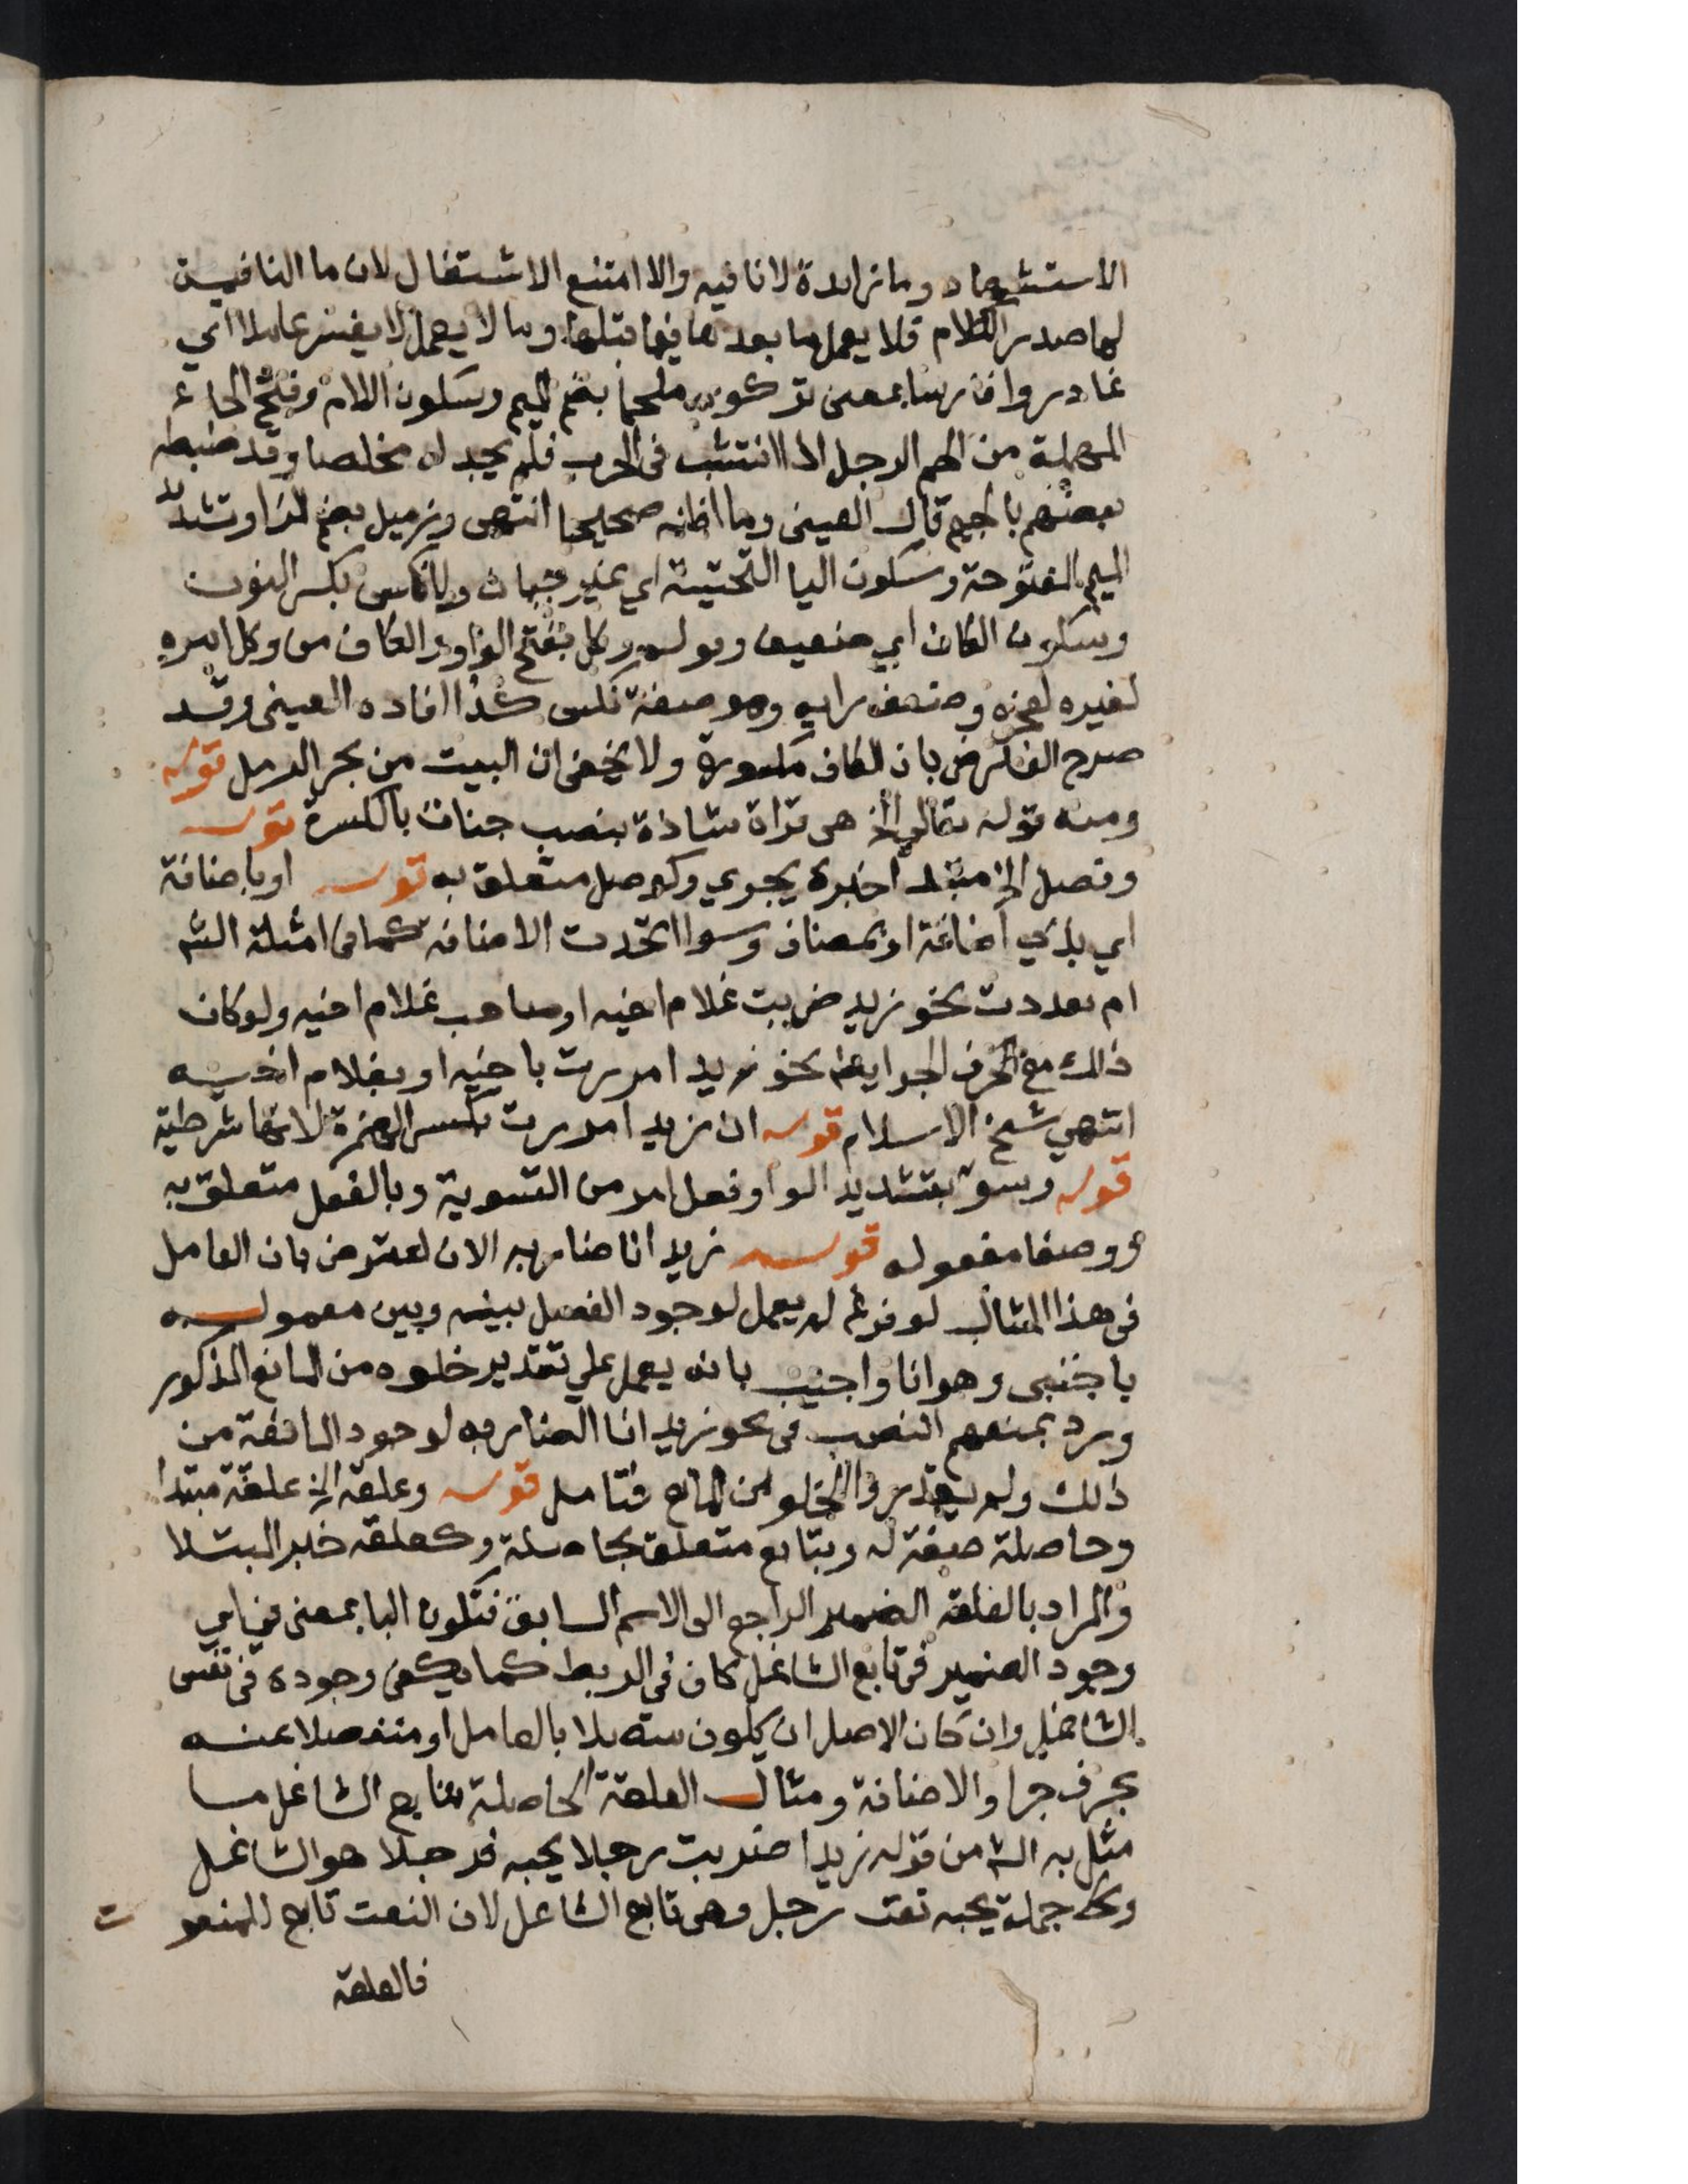 الاستشهاد وما زايدة لا نافيه والا امتنع الاشتغال لان ما النافية
لها صدر الكلام فلا يعمل ما بعدها فيما قبلها وما لا يعمل لا يفسر عاملا اي
غادروا فارسا بمعنى تركوه ملحما بضم الميم وسكون اللام وفتح الحاء
المهملة من الحم الرجل اذا انتشب في الحرب فلم يجد له مخلصا وقد ضبطه
بعضهم بالجيم قال العيني وما اظنه صحيحا انتهى وزميل بضم الزا وتشديد
الميم المفتوحة وسكون اليا التحتية اي غير جبان ولا نكس بكسر النون
وسكون الكاف اي ضعيف وقوله وكل بفتح الواو والكاف من وكل امره
لغيره لعجزه وضعف رايه وهو صفة نكس كذا افاده العيني وقد
صرح الفارضي بان الكاف مكسورة ولا يخفى ان البيت من بحر الرمل قوله
ومنه قوله تعالى الخ هي قراة شاذة بنصب جنات بالكسرة قوله
وفصل الخ مبتدا خبره يجري وكوصل متعلق به قوله او باضافة
اي بذي اضافة او بمضاف وسوا اتحدت الاضافه كما في امثلة الشم
ام تعددت نحو زيد ضربت غلام اخيه او صاحب غلام اخيه ولو كان
ذلك مع الحرف الجر ايضا نحو زيد امررت باخيه او بغلام اخيه
انتهى شيخ الاسلام قوله ان زيد امررت بكسر الهمزة لانها شرطية
قوله وسو بتشديد الواو فعل امر من التسوية وبالفعل متعلق به
ووصفا مفعوله قوله زيد انا ضاربه الان اعترض بان العامل
في هذا المثال لو فرغ لم يعمل لوجود الفصل بينه وبين معموله
باجنبي وهو انا واجيب بانه يعمل على تقدير خلوه من المانع المذكور
ورد بمنعهم النصب في نحو زيد انا الضاربه لوجود المانعة من
ذلك ولم يقدروا الخلو من المانع فتامل قوله وعلقة الخ علقة مبتدا
وحاصلة صفة له وبتابع متعلق بحاصلة وكعلقه خبر المبتدا
والمراد بالعلقة الضمير الراجع الى الاسم السابق فتكون البا بمعنى في اي
وجود الضمير في تابع الشاغل كاف في الربط كما يكفي وجوده في نفس
الشاغل وان كان الاصل ان يكون متصلا بالعامل او منفصلا عنه
بحرف جر او الاضافة ومثال العلقة الحاصلة بتابع الشاغل ما
مثل به الشم من قوله زيدا ضربت رجلا يحبه فرجلا هو الشاغل
وكل جملة يحبه نعت رجل وهي تابع الشاغل لان النعت تابع للمنعوت
فالعلقة